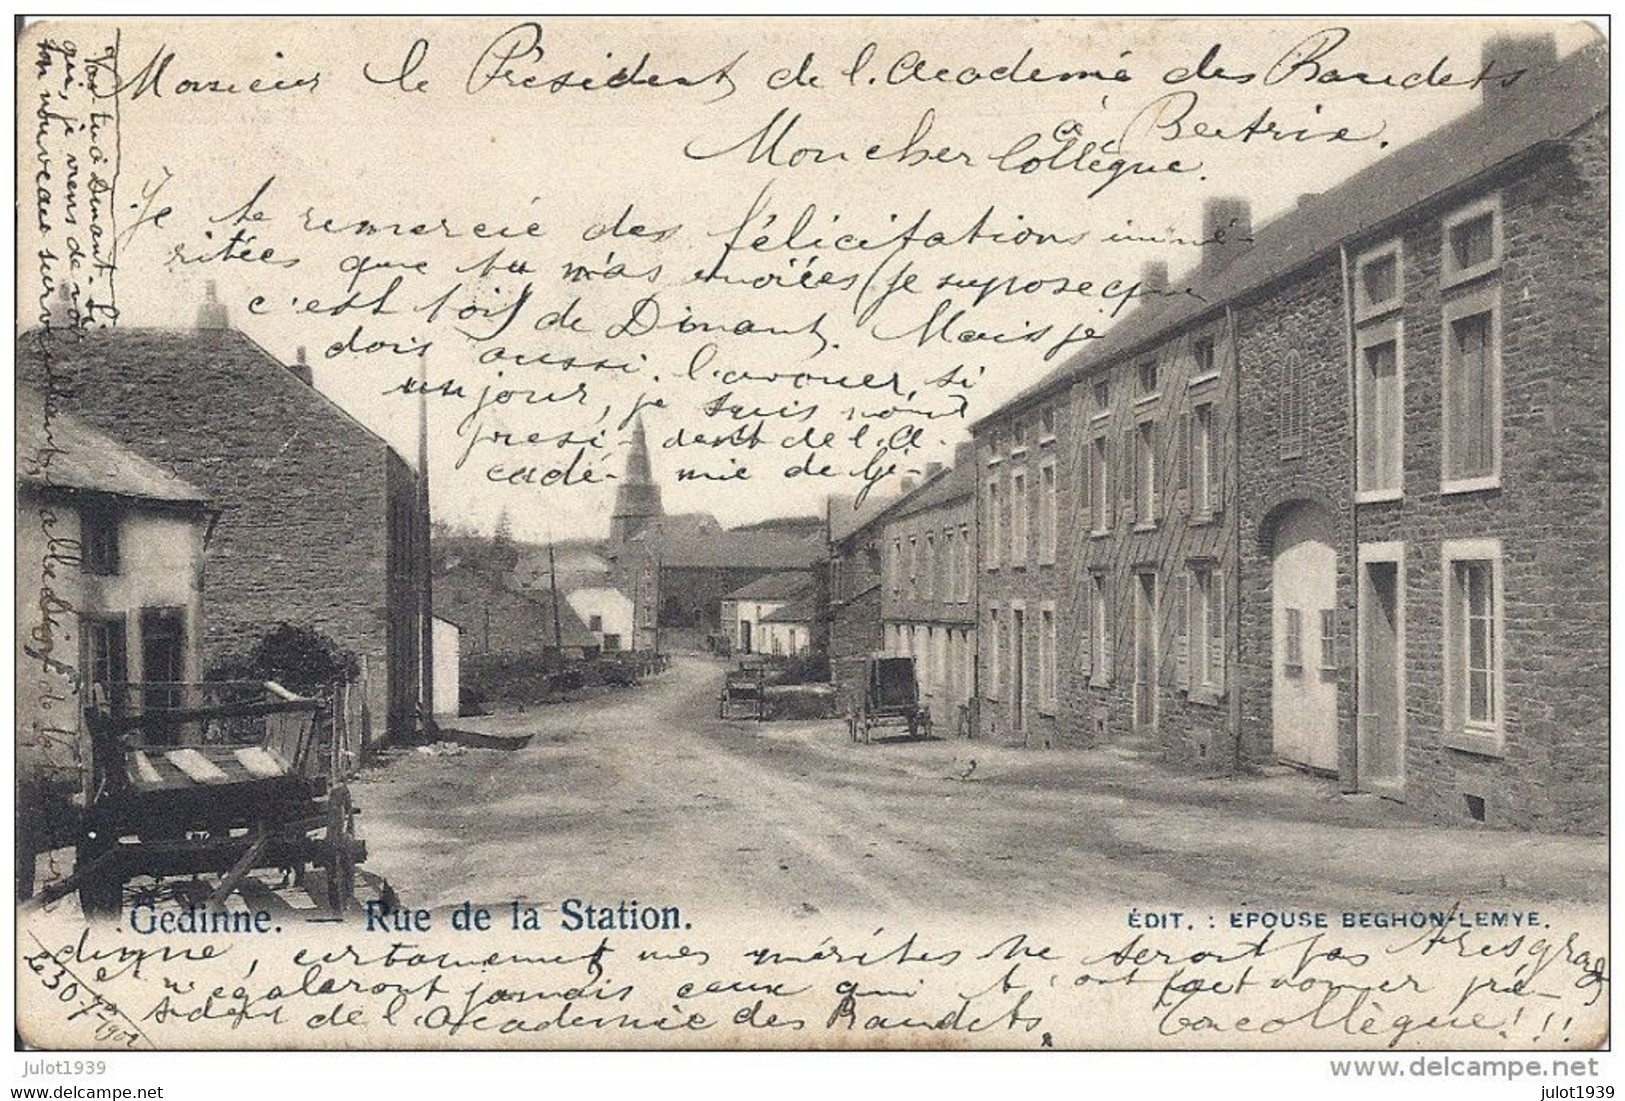 Monsieur le Président de l'Academie des Baudets
à Bertrix.
Mon cher Collègue.
Je te remercie des félicitations immé-
ritées que tu m'as envoiées (je suppose que
c'est toi) de Dinant. Mais je
dois aussi l'avouer, si
un jour, je suis
presi- dent de l'A-
cadé- mie de Gé-
Gedinne. — Rue de la Station.
ÉDIT. : EPOUSE BEGHON-LEMYE.
dinne, certainement mes mérites ne seront pas très grands
et n'égaleront jamais ceux qui t'ont fait nomer pré-
sident de l'Academie des Baudets.
Ton collègue!!!
Le 30-7
Vas tu à Dinant. Si
oui, je viens de voir
ton nouveau surveillant
julot1939
delcampe.net
julot1939 (C)
julot1939